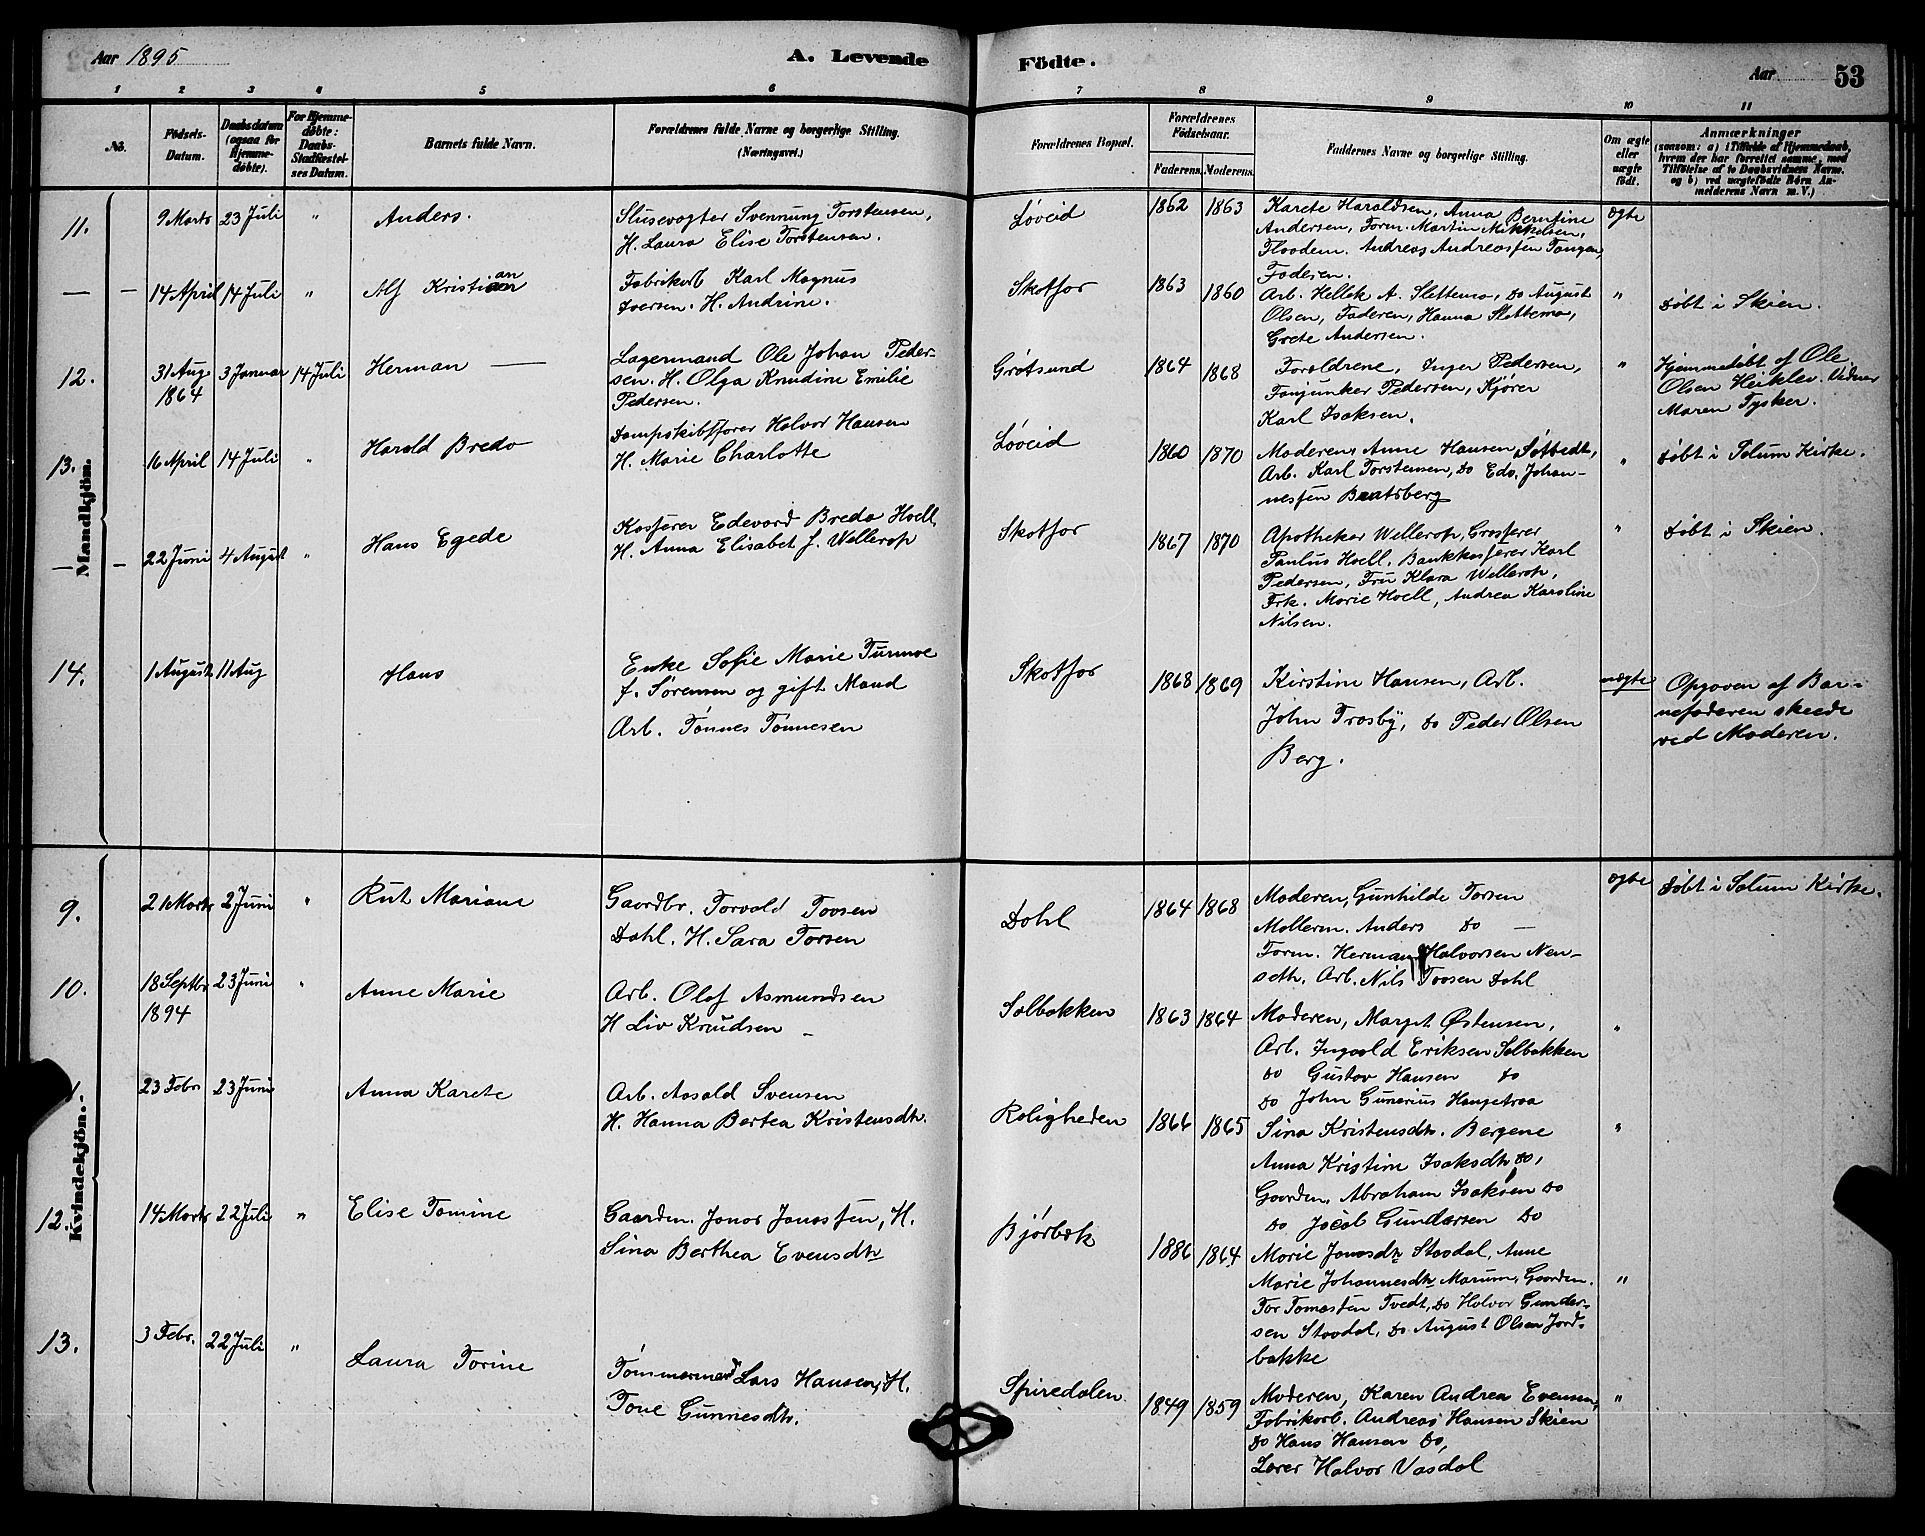 Aar 1895
A. Levende
Födte.
Aar
53
1
2
3
4
5
6
7
8
9
10
11
No.
Födsels-
Datum.
Daabsdatum
(ogsaa for
Hjemme-
döbte).
For Hjemme-
döbte:
Daabs-
Stadfæstel-
ses Datum.
Barnets fulde Navn.
Forældrenes fulde Navne og borgerlige Stilling.
(Næringsvei.)
Forældrenes Bopæl.
Forældrenes
Födselsaar.
Faderens.
Moderens.
Faddernes Navne og borgerlige Stilling.
Om ægte
eller
uægte
födt.
Anmærkninger
(saasom: a) i Tilfælde af Hjemmedaab,
hvem der har forrettet samme, med
Tilföielse af to Daabsvidners Navne.
og b) ved uægtefödte Börn An-
melderens Navn m. V.)
Mandkjön.
11.
9 Marts
23 Juli
"
Anders.
Slusevogter Svennung Torstensen,
H. Laura Elise Torstensen.
Løveid
1862
1863
Karete Haraldsen, Anna Berntine
Andersen, Form. Martin Mikkelsen,
Floodem. Andreas Andreassen Tangen,
Faderen.
ægte
— —
14 April
14 Juli
"
Alf Kristian
Fabrikarb Karl Magnus
Iversen. H. Andrine.
Skotfos
1863
1860
Arb. Hellek A. Slettemo, Do August
Olsen, Faderen, Hanna Slettemo,
Grete Andersen.
"
Døbt i Skien.
12.
31 Aug
1864
3 Januar
14 Juli
Herman —
Lagermand Ole Johan Peder-
sen. H. Olga Knudine Emilie
Pedersen.
Grøtsund
1864
1868
Forældrene, Inger Pedersen,
Fanjunker Pedersen, Kjører
Karl Isaksen.
"
Hjemmedøbt af Ole
Olsen Heiklev. Vidner
Maren Tysker.
13.
16 April
14 Juli
"
Harald Bredo
Dampskibsfører Halvor Hansen
H. Marie Charlotte
Løveid
1860
1870
Moderen, Anne Hansen,
Arb. Karl Torstensen, Do Edv. Johan-
nessen Bratsberg
"
Døbt i Solum Kirke.
— —
22 Juni
4 August
"
Hans Egede
Kasserer Edevard Bredo Hoell
H. Anna Elisabet f. Wellerop
Skotfos
1867
1870
Apotheker Wellerop, Grosserer
Paulus Hoell, Bankkasserer Karl
Pedersen, Fru Klara Wellerop,
Frk. Marie Hoell, Andrea Karoline
Nilsen.
"
Døbt i Skien.
14.
1 August
11 Aug
Hans
Enke Sofie Marie Turmoe
f. Sørensen og gift Mand
Arb. Tønnes Tønnesen
Skotfos
1868
1869
Kirstine Hansen, Arb.
John Trosby, Do Peder Olsen
Berg.
uægte
Opgaven af Bar-
nefaderen skeede
ved Moderen.
Kvindekjön.
9.
21 Marts
2 Juni
"
Rut Mariane
Gaardbr. Torvald Tovsen
Dahl. H. Sara Torsen
Dahl
1864
1868
Moderen, Gunhilde Torsen
Mølleren. Anders Do —
Form. Herman Halvorsen Nen-
seth, Arb. Nils Tovsen Dahl
ægte
Døbt i Solum Kirke.
10.
18 Septbr
1894
23 Juni
"
Anne Marie
Arb. Olaf Asmundsen
H Liv Knudsen —
Solbakken
1863
1864
Moderen, Margit Østensen,
Arb. Ingvald Eriksen Solbakken
Do Gustav Hansen Do
Do John Gunerius Haugetraa
"
23 Febr
23 Juni
Anna Karete
Arb. Aasold Svensen
H. Hanna Bertea Kristensdtr.
Roligheden
1866
1865
Sina Kristensdtr. Bergene
Anna Kristine Isaksdtr Do,
Gaarden. Abraham Isaksen Do
Do Jacob Gundersen Do
"
12.
14 Marts
22 Juli
"
Elise Tomine
Gaarden. Jonas Jonassen, H.
Sina Berthea Evensdtr
Bjørbæk
1886
1864
Marie Jonasdtr Stavdal, Anne
Marie Johannesdtr Marum, Gaarden.
Tor Tomassen Tvedt, Do Halvor Gunder-
sen Stavdal, Do August Olsen Jords-
bakke
"
13.
3 Febr.
22 Juli
"
Laura Torine
Tømmermand Lars Hansen, H.
Tone Gunnesdtr.
Spiredalen
1849
1859
Moderen, Karen Andrea Evensen,
Fabrikarb. Andreas Hansen Skien
Do Hans Hansen Do,
Lærer Halvor Vasdal
"